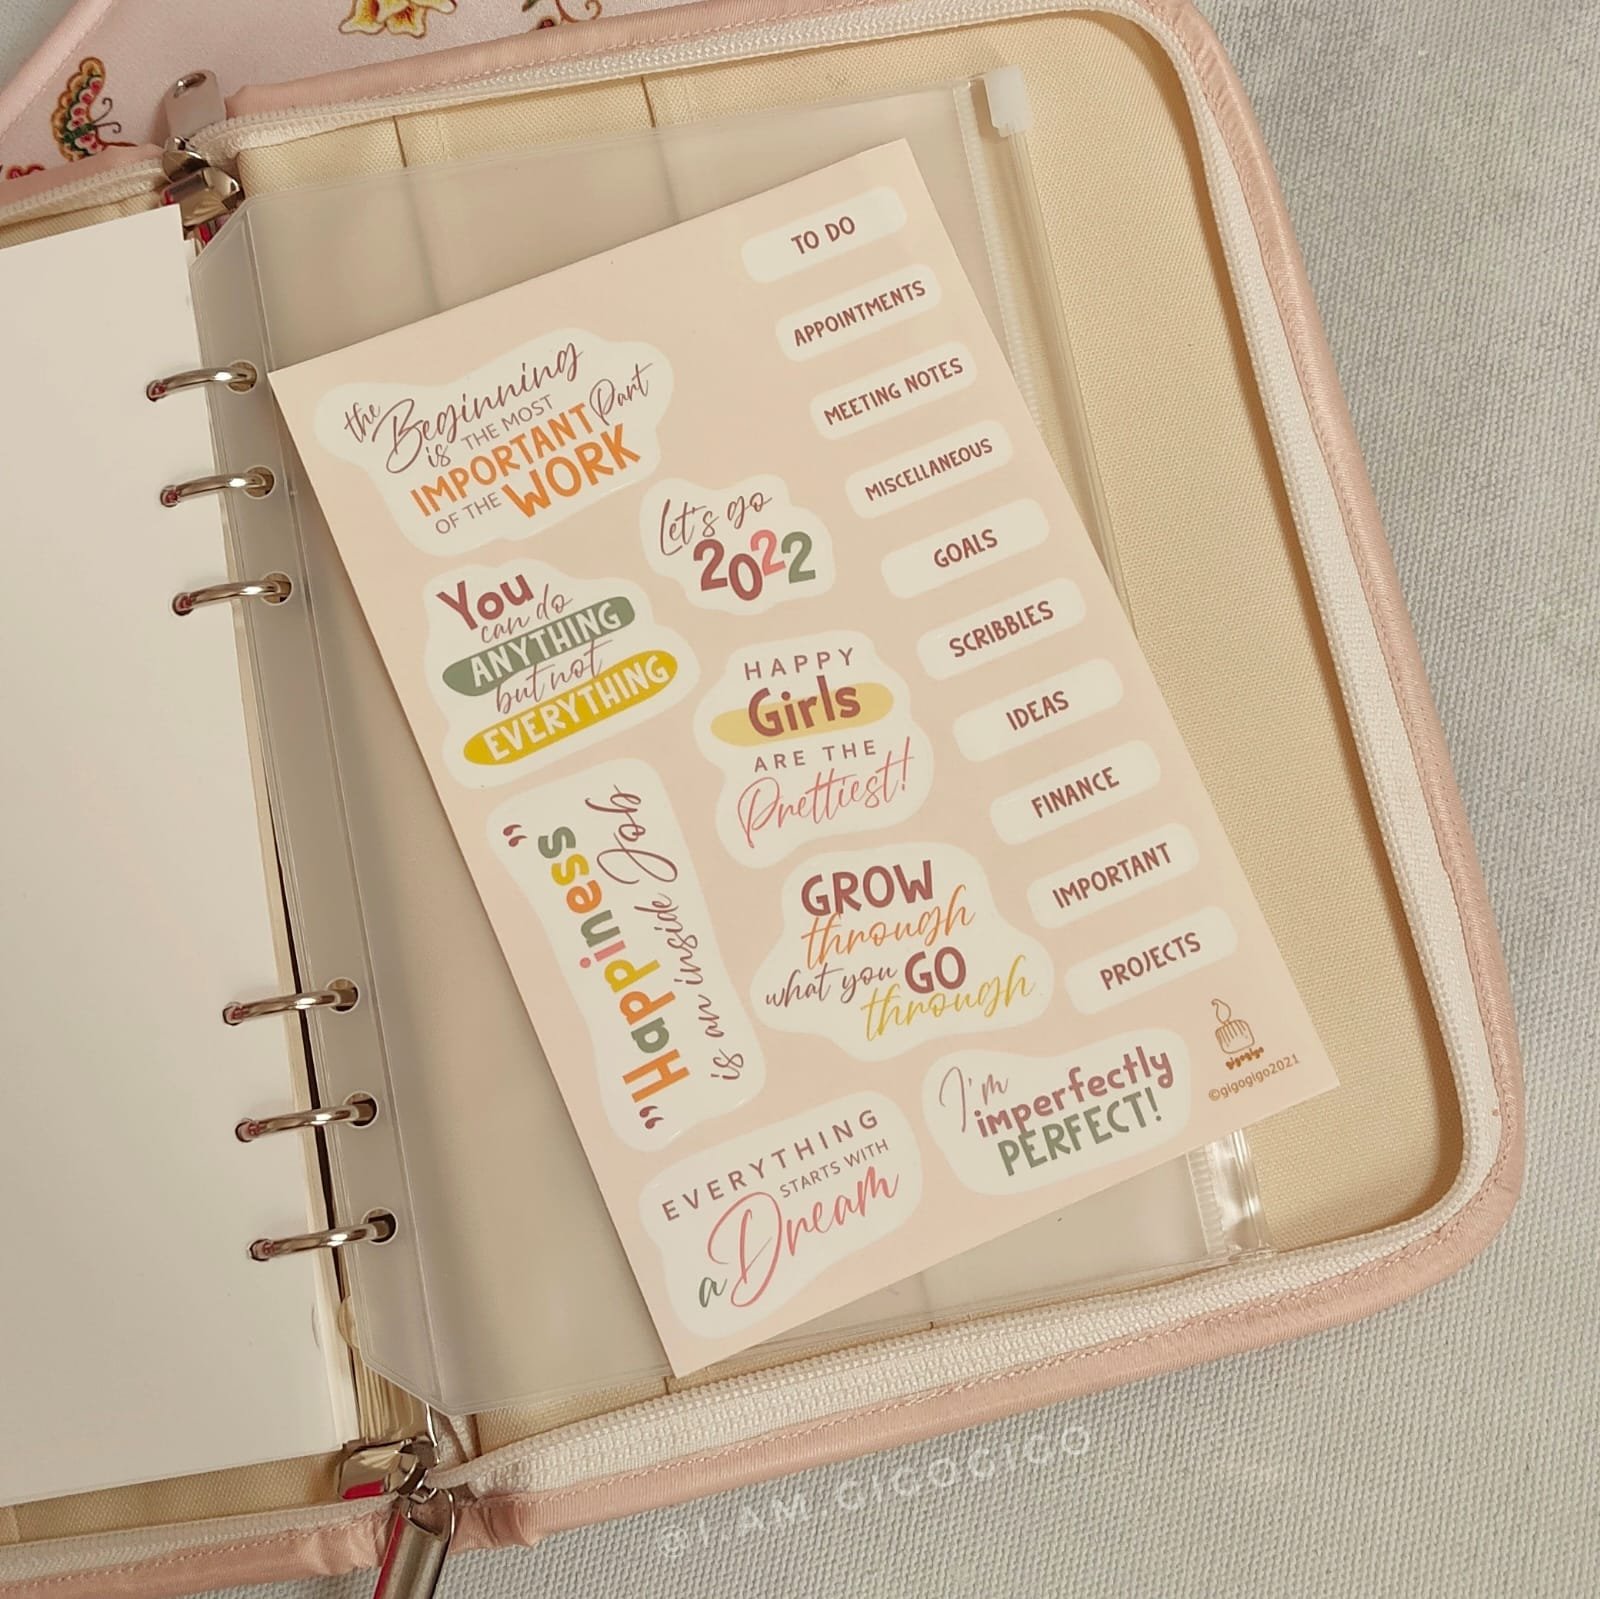 the Beginning
is THE MOST
IMPORTANT Part
OF THE WORK
Let's go
2022
You
can do
ANYTHING
but not
EVERYTHING
HAPPY
Girls
ARE THE
Prettiest!
"Happiness"
is an inside Job
GROW
through
what you GO
through
EVERYTHING
STARTS WITH
a Dream
I'm
imperfectly
PERFECT!
TO DO
APPOINTMENTS
MEETING NOTES
MISCELLANEOUS
GOALS
SCRIBBLES
IDEAS
FINANCE
IMPORTANT
PROJECTS
gigogigo
©gigogigo2021
@I.AM.GIGOGIGO